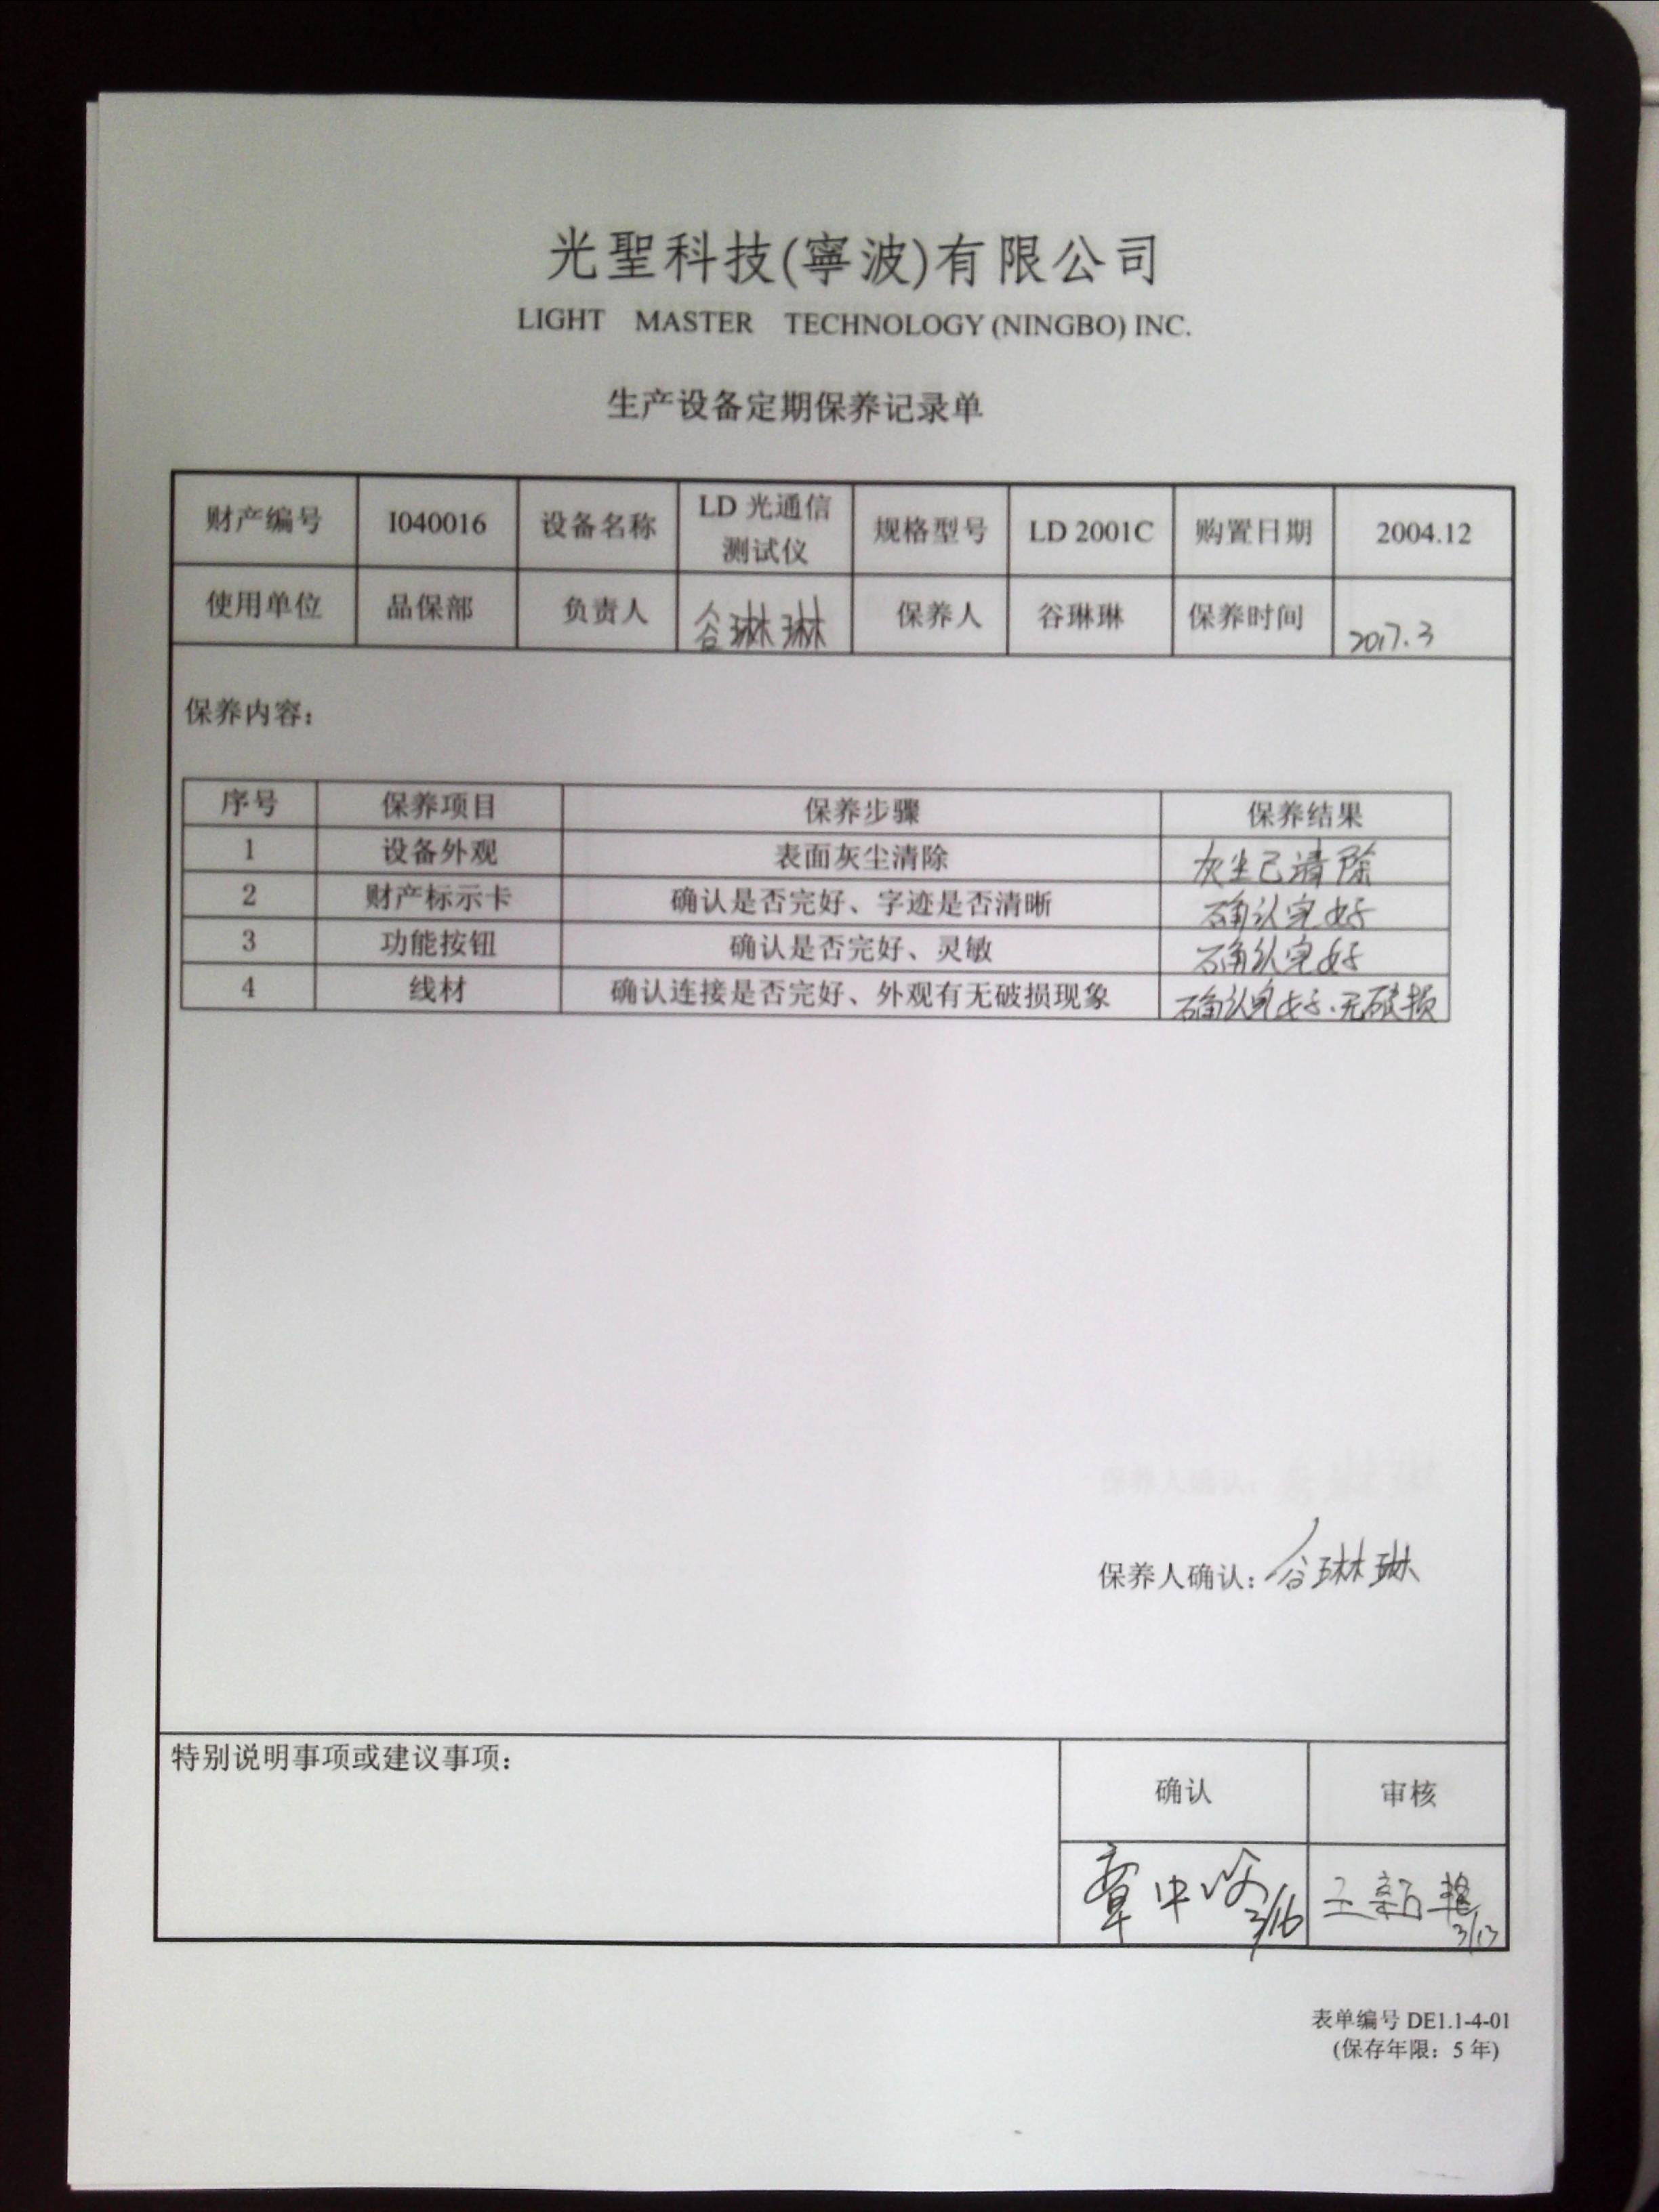 光聖科技(寧波)有限公司
LIGHT MASTER TECHNOLOGY (NINGBO) INC.
生产设备定期保养记录单
财产编号 I040016 设备名称 LD 光通信测试仪 规格型号 LD 2001C 购置日期 2004.12
使用单位 品保部 负责人 谷琳琳 保养人 谷琳琳 保养时间 2017.3
保养内容：
序号 保养项目 保养步骤 保养结果
1 设备外观 表面灰尘清除 灰尘已清除
2 财产标示卡 确认是否完好、字迹是否清晰 确认完好
3 功能按钮 确认是否完好、灵敏 确认完好
4 线材 确认连接是否完好、外观有无破损现象 确认完好、无破损
保养人确认：谷琳琳
特别说明事项或建议事项：
确认 审核
3/16 3/13
表单编号 DE1.1-4-01
(保存年限：5 年)